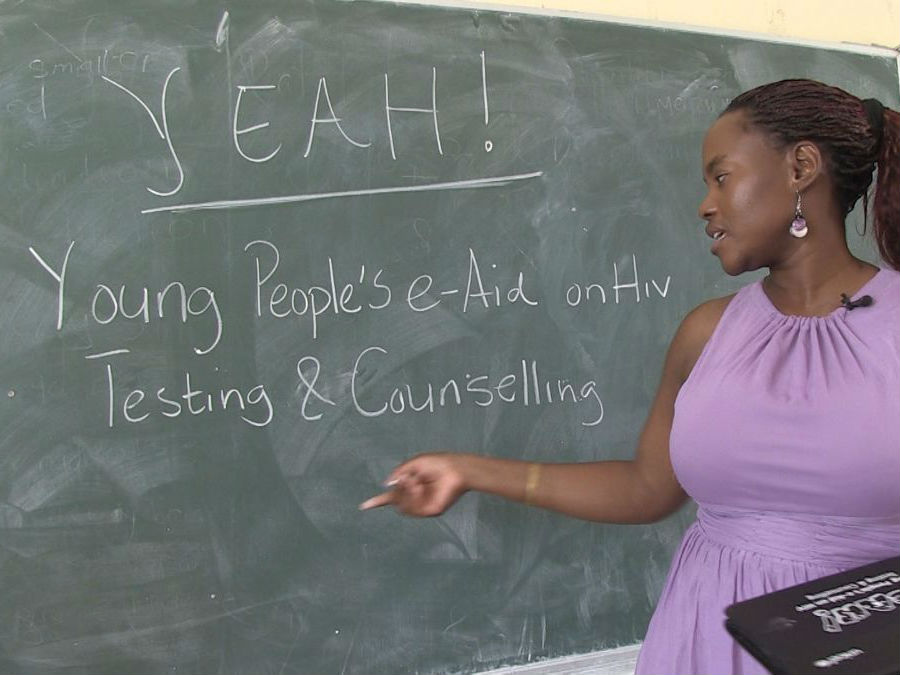 YEAH!
Young People's e-Aid on Hiv
Testing & Counselling